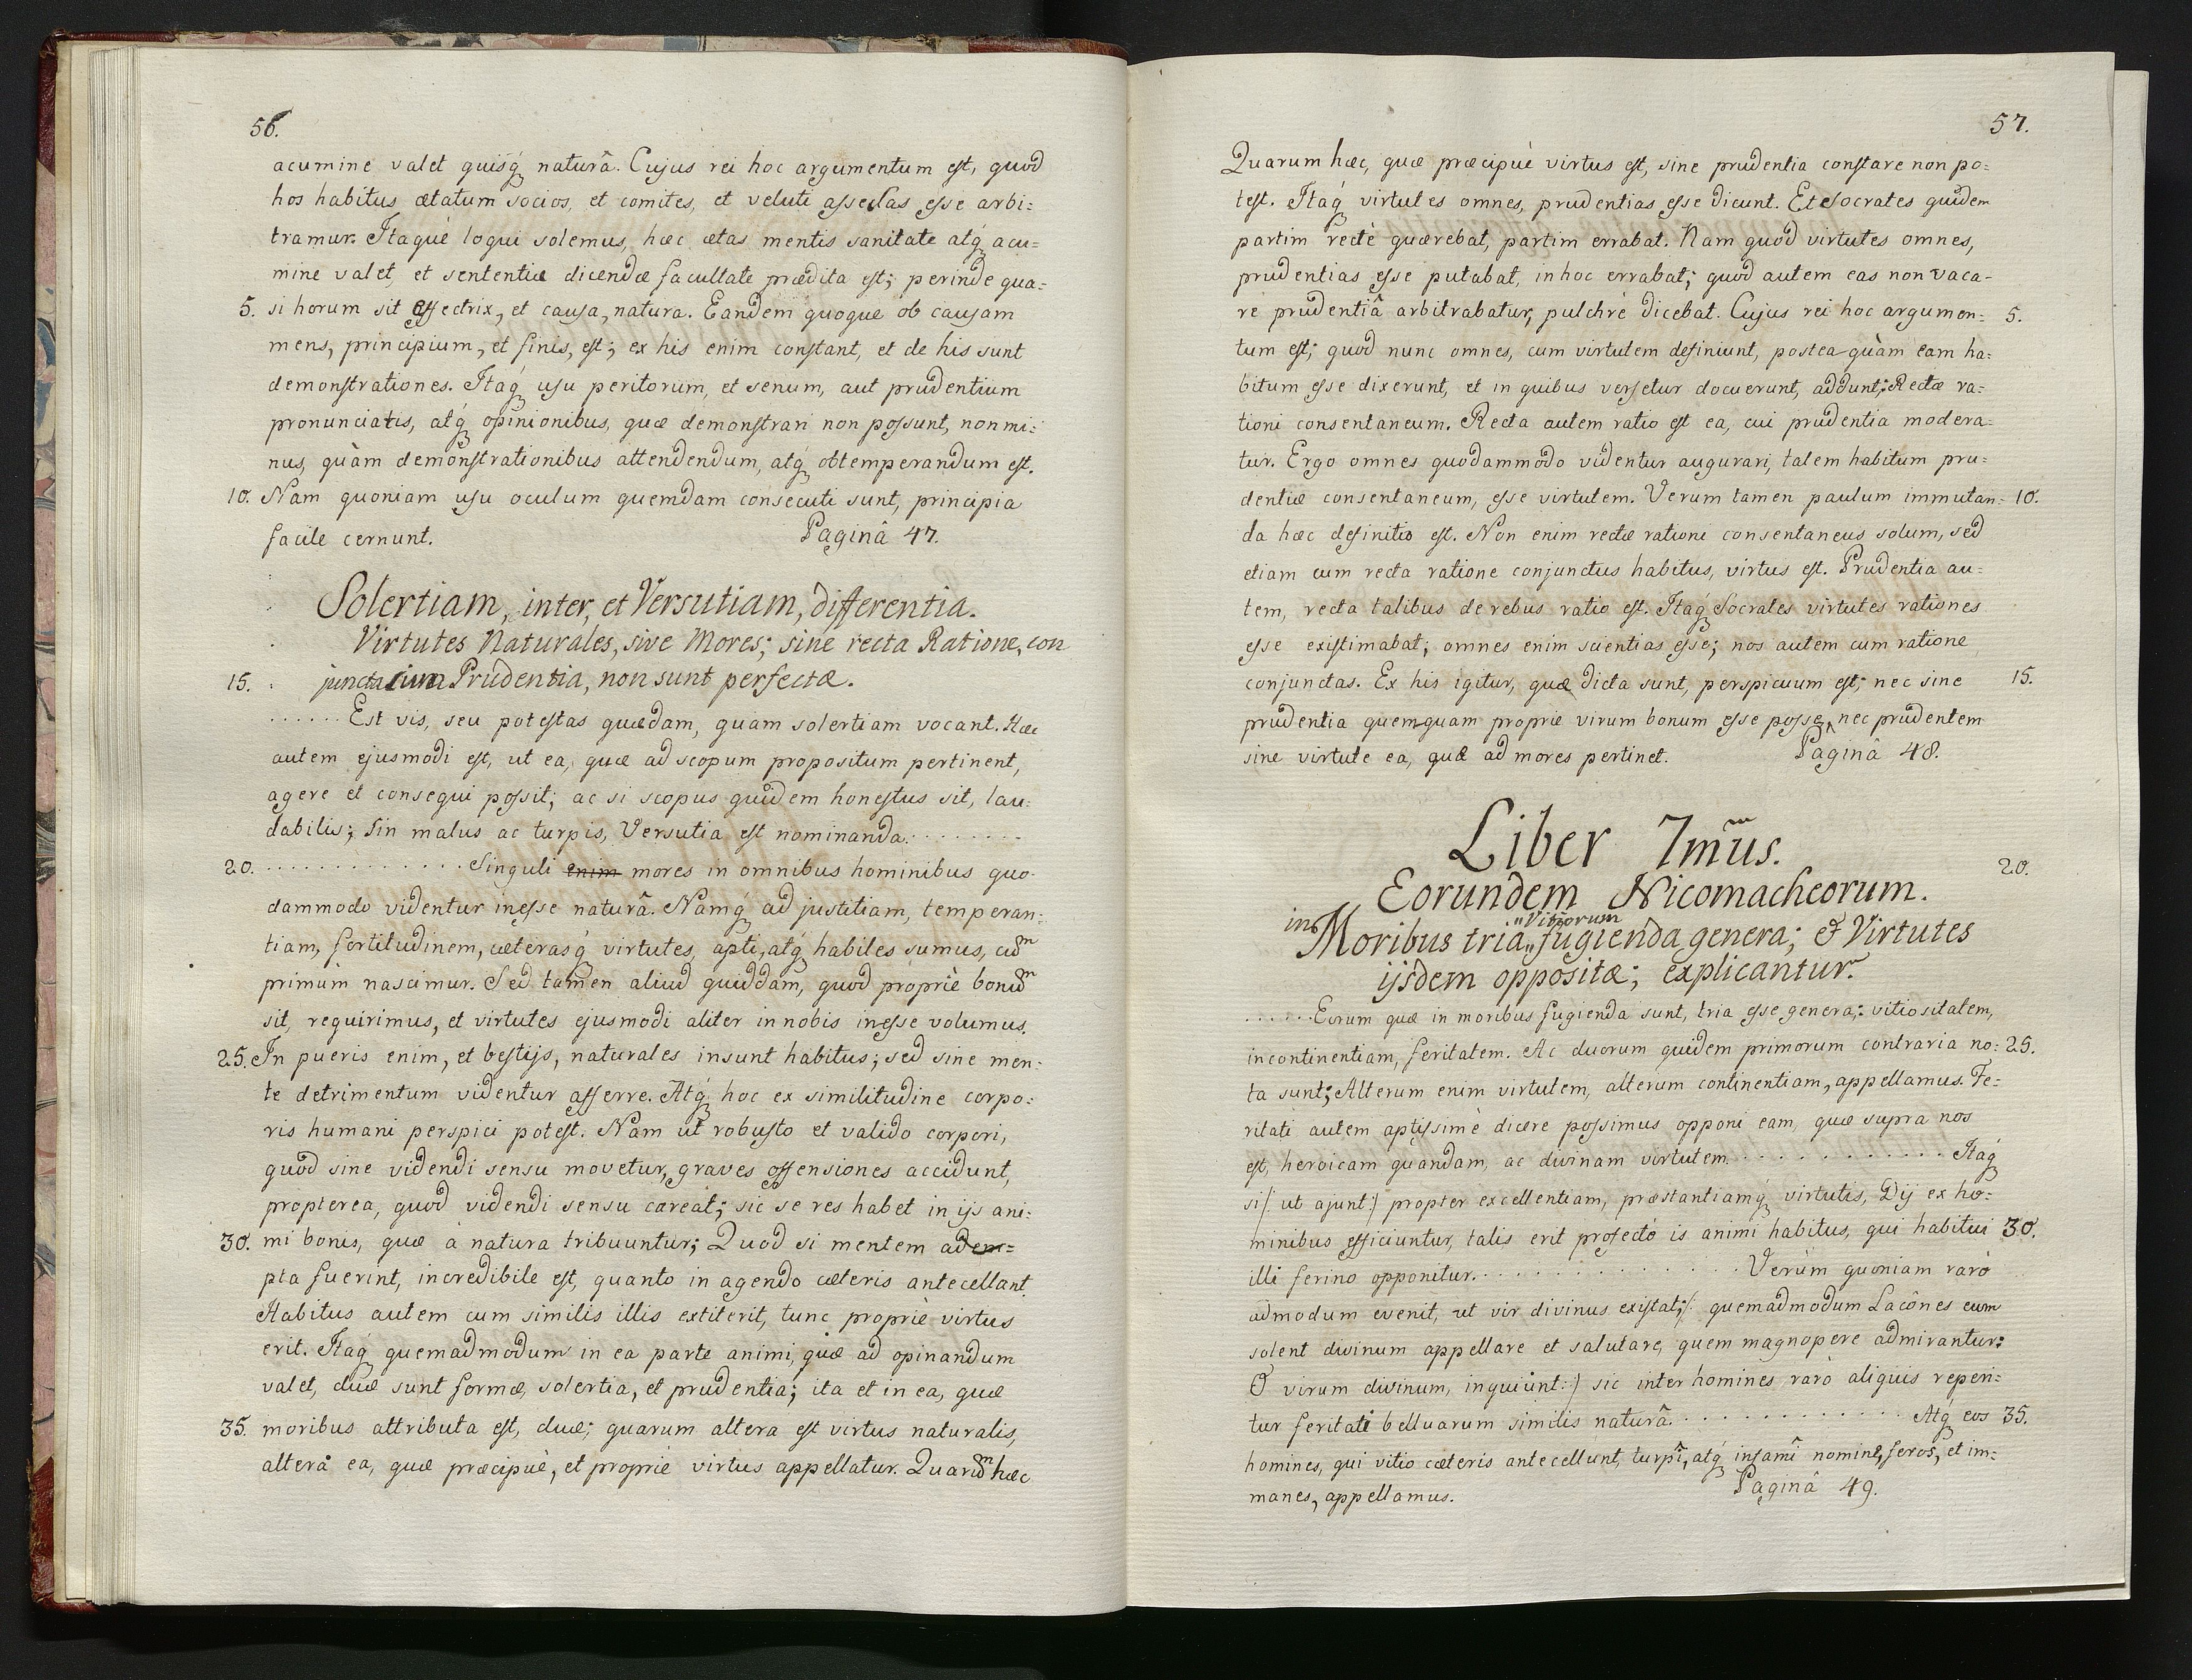 56.
acumine valet quisq́ naturâ. Cujus rei hoc argumentum est, quod
hos habitus ætatum socios, et comites, et veluti asseclas esse arbi=
tramur. Itaquè loqui solemus, hæc ætas mentis sanitate atq́ acu=
mine valet, et sententiæ dicendæ facultate prædita est; perinde qua=
5. si horum sit effectrix, et causa, natura. Eandem quoque ob causam
mens, principium, et finis, est; ex his enim constant, et de his sunt
demonstrationes. Itaq́ usu peritorum, et senum, aut prudentium
pronunciatis, atq́ opinionibus, quæ demonstrari non possunt, non mi=
nus, quàm demonstrationibus attendendum, atq́ obtemperandum est.
10. Nam quoniam usu oculum quemdam consecuti sunt, principia
facile cernunt. Paginâ 47.
Solertiam, inter, et Versutiam, differentia.
Virtutes Naturales, sive Mores; sine recta Ratione, con
15. juncta cum Prudentia, non sunt perfectæ.
...... Est vis, seu potestas quædam, quam solertiam vocant. Hæc
autem ejusmodi est, ut ea, quæ ad scopum propositum pertinent,
agere et consequi possit; ac si scopus quidem honestus sit, lau=
dabilis; sin malus ac turpis, Versutia est nominanda. . . . . . . .
20. . . . . . . . . . . . . . Singuli enim mores in omnibus hominibus quo=
dammodo videntur inesse naturâ. Namq́ ad justitiam, temperan=
tiam, fortitudinem, cæterasq́ virtutes, apti, atq́ habiles sumus, cum
primùm nascimur. Sed tamen aliud quiddam, quod propriè bonum
sit, requirimus, et virtutes ejusmodi aliter in nobis inesse volumus.
25. In pueris enim, et bestijs, naturales insunt habitus; sed sine men=
te detrimentum videntur afferre. Atq́ hoc ex similitudine corpo=
ris humani perspici potest. Nam ut robusto et valido corpori,
quod sine videndi sensu movetur, graves offensiones accidunt,
propterea, quod videndi sensu careat; sic se res habet in ijs ani=
30. mi bonis, quæ à natura tribuuntur; Quod si mentem adem=
pta fuerint, incredibile est, quanto in agendo cæteris antecellant.
Habitus autem cum similis illis extiterit, tunc propriè virtus
erit. Itaq́ quemadmodum in ea parte animi, quæ ad opinandum
valet, duæ sunt formæ, solertia, et prudentia; ita et in ea, quæ
35. moribus attributa est, duæ; quarum altera est virtus naturalis,
altera ea, quæ præcipuè, et propriè virtus appellatur. Quarum hæc
57.
Quarum hæc, quæ præcipuè virtus est, sine prudentia constare non po=
test. Itaq́ virtutes omnes, prudentias esse dicunt. Et Socrates quidem
partim rectè quærebat, partim errabat. Nam quod virtutes omnes,
prudentias esse putabat, in hoc errabat; quod autem eas non vaca-
re prudentiâ arbitrabatur, pulchrè dicebat. Cujus rei hoc argumen= 5.
tum est; quod nunc omnes, cum virtutem definiunt, postea quàm eam ha=
bitum esse dixerunt, et in quibus versetur docuerunt, addunt; Rectæ ra=
tioni consentaneum. Recta autem ratio est ea, cui prudentia modera=
tur. Ergo omnes quodammodo videntur augurari, talem habitum pru=
dentiæ consentaneum, esse virtutem. Verum tamen paulum immutan= 10.
da hæc definitio est. Non enim rectæ rationi consentaneus solum, sed
etiam cum recta ratione conjunctus habitus, virtus est. Prudentia au=
tem, recta talibus de rebus ratio est. Itaq́ Socrates virtutes rationes
esse existimabat; omnes enim scientias esse; nos autem cum ratione
conjunctas. Ex his igitur, quæ dicta sunt, perspicuum est; nec sine 15.
prudentia quemquam proprie virum bonum esse posse, nec prudentem
sine virtute ea, quæ ad mores pertinet. Paginâ 48.
Liber 7mus.
20.
Eorundem Nicomacheorum.
in Moribus tria, "Vitiorum" fugienda genera; & Virtutes
ijsdem oppositæ; explicantur.
...... Eorum quæ in moribus fugienda sunt, tria esse genera; vitiositatem,
incontinentiam, feritatem. Ac duorum quidem primorum contraria no= 25.
ta sunt; Alterum enim virtutem, alterum continentiam, appellamus. Fe=
ritati autem aptissimè dicere possimus opponi eam, quæ supra nos
est, heroicam quandam, ac divinam virtutem. . . . . . . . . . . . . Itaq́
si /: ut ajunt :/ propter excellentiam, præstantiamq́ virtutis, Dij ex ho=
minibus efficiuntur, talis erit profectò is animi habitus, qui habitui 30.
illi ferino opponitur. . . . . . . . . . . . . . . Verùm quoniam rarò
admodum evenit, ut vir divinus existat; /: quemadmodum Lacônes eum
solent divinum appellare et salutare, quem magnopere admirantur:
O virum divinum, inquiunt :/ sic inter homines rarò aliquis reperi=
tur feritati belluarum similis naturâ. . . . . . . . . . . . . Atq́ eos 35.
homines, qui vitio cæteris antecellunt, turpi, atq́ infami nomine, feros, et im=
manes, appellamus. Paginâ 49.